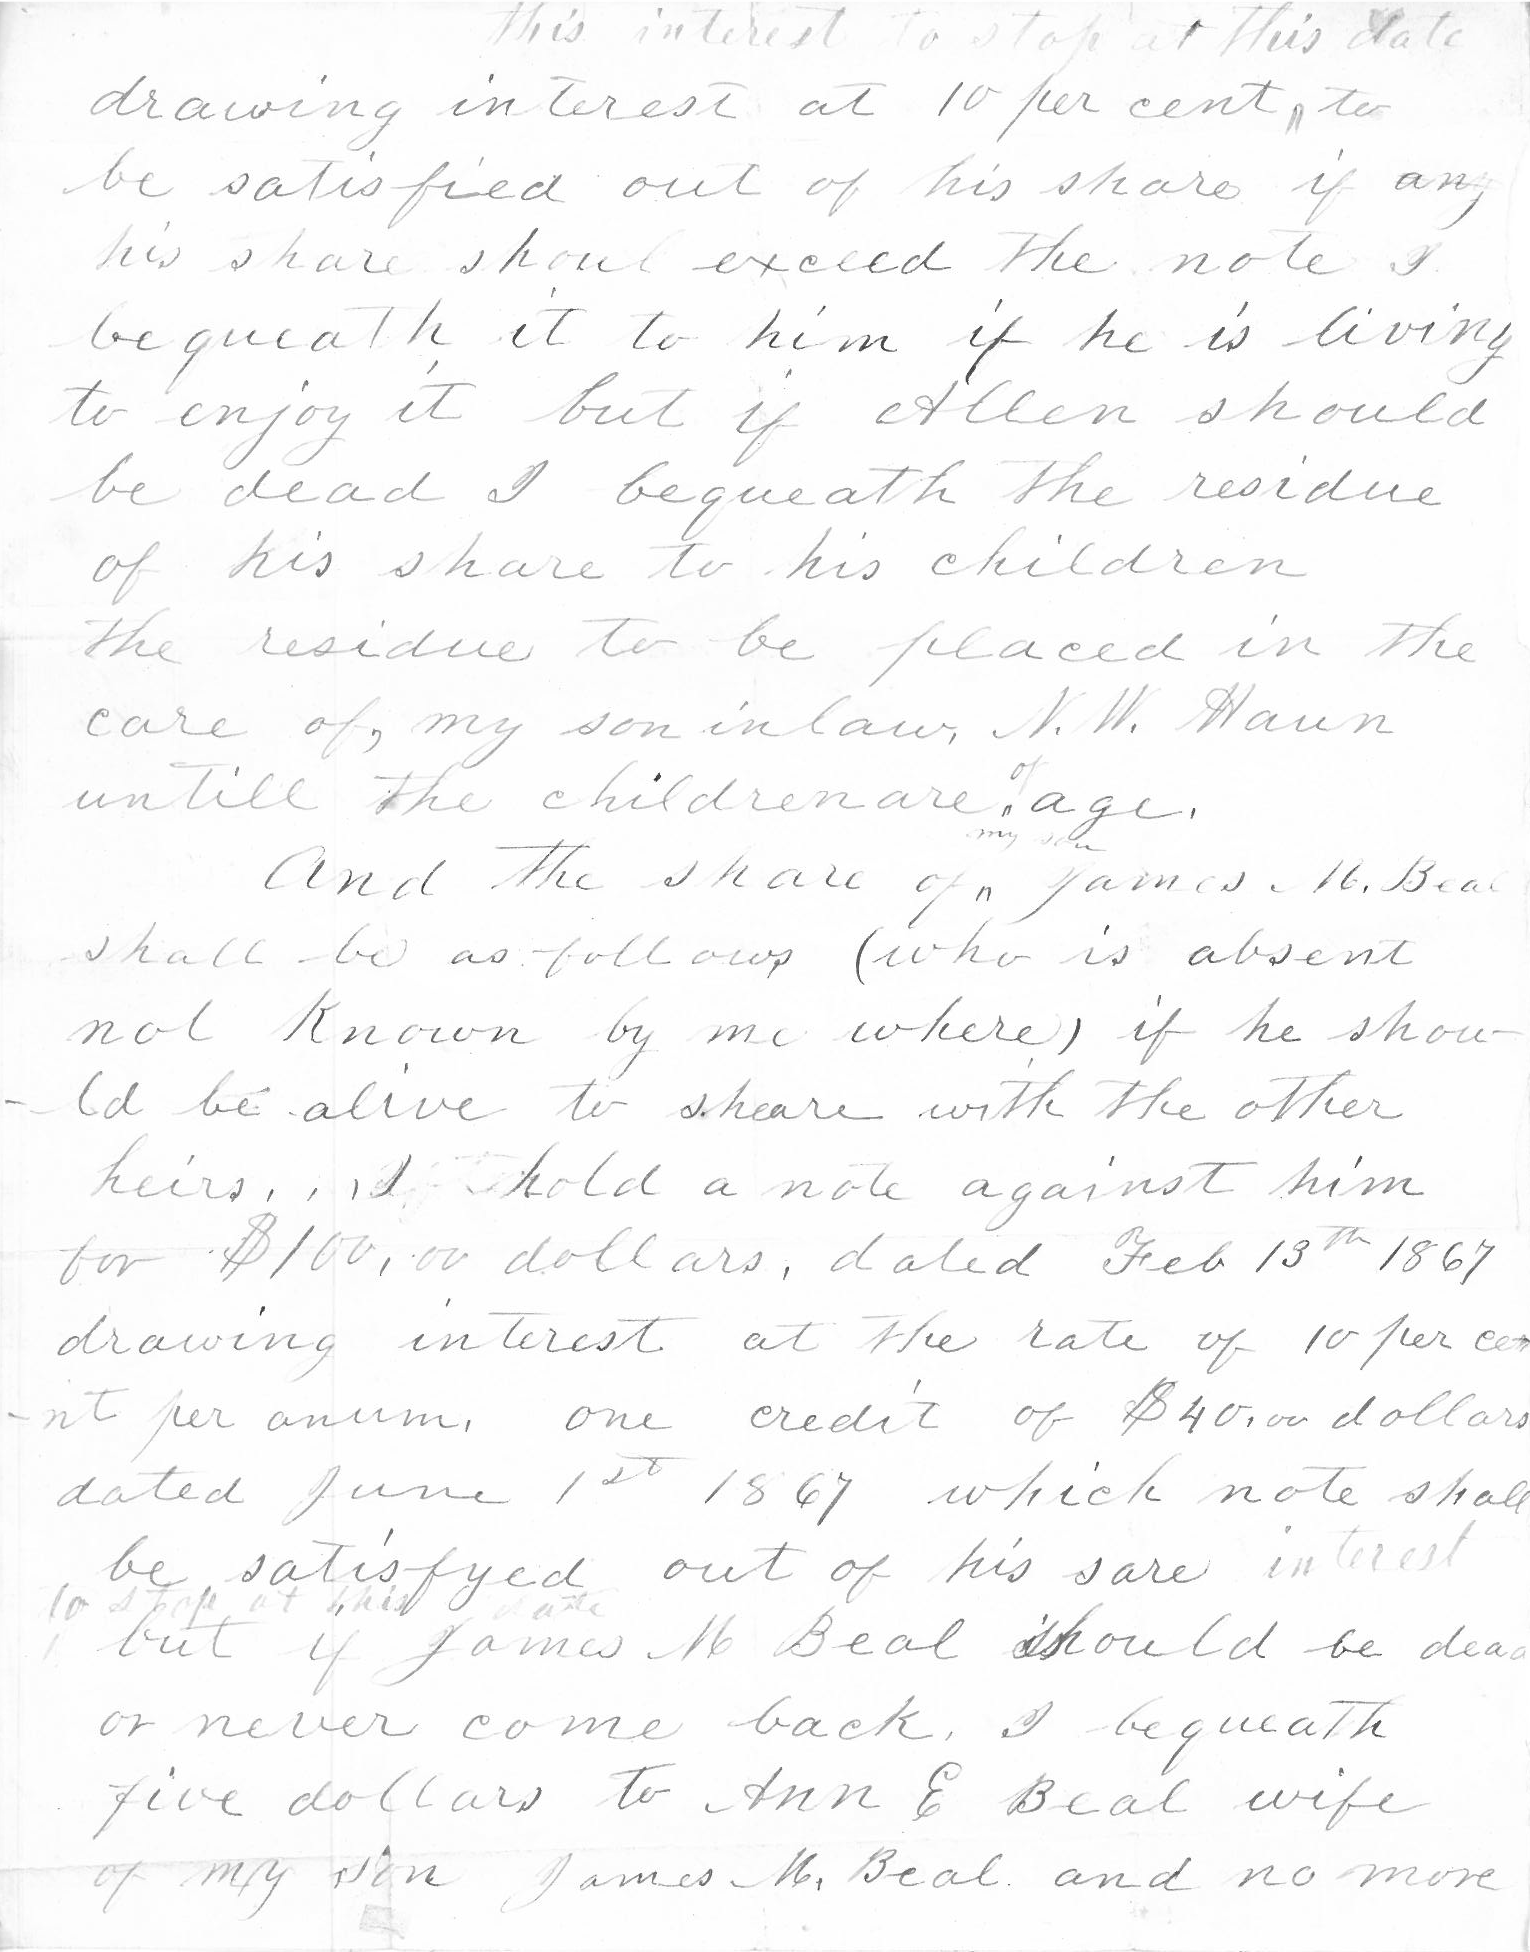 this interest to stop at this date
drawing interest at 10 per cent to
be satisfied out of his share if any
his share shoul exceed the note I
bequeath it to him if he is living
to enjoy it but if Allen should
be dead I bequeath the residue
of his share to his children
the residue to be placed in the
care of, my son inlaw, N. W. Haun
of
untill the children are age.
my son
And the share of James M. Beal
shall be as follows (who is absent
not Known by me where) if he shou-
-ld be alive to sheare with the other
heirs. I hold a note against him
for $100,00 dollars, dated Feb 13th 1867
drawing interest at the rate of 10 per ce
-nt per anum, one credit of $40,00 dollars
dated June 1st 1867 which note shall
be satisfyed out of his sare interest
to stop at this date
but if James M Beal should be dead
or never come back, I bequeath
five dollars to Ann E Beal wife
of my son James M. Beal and no more